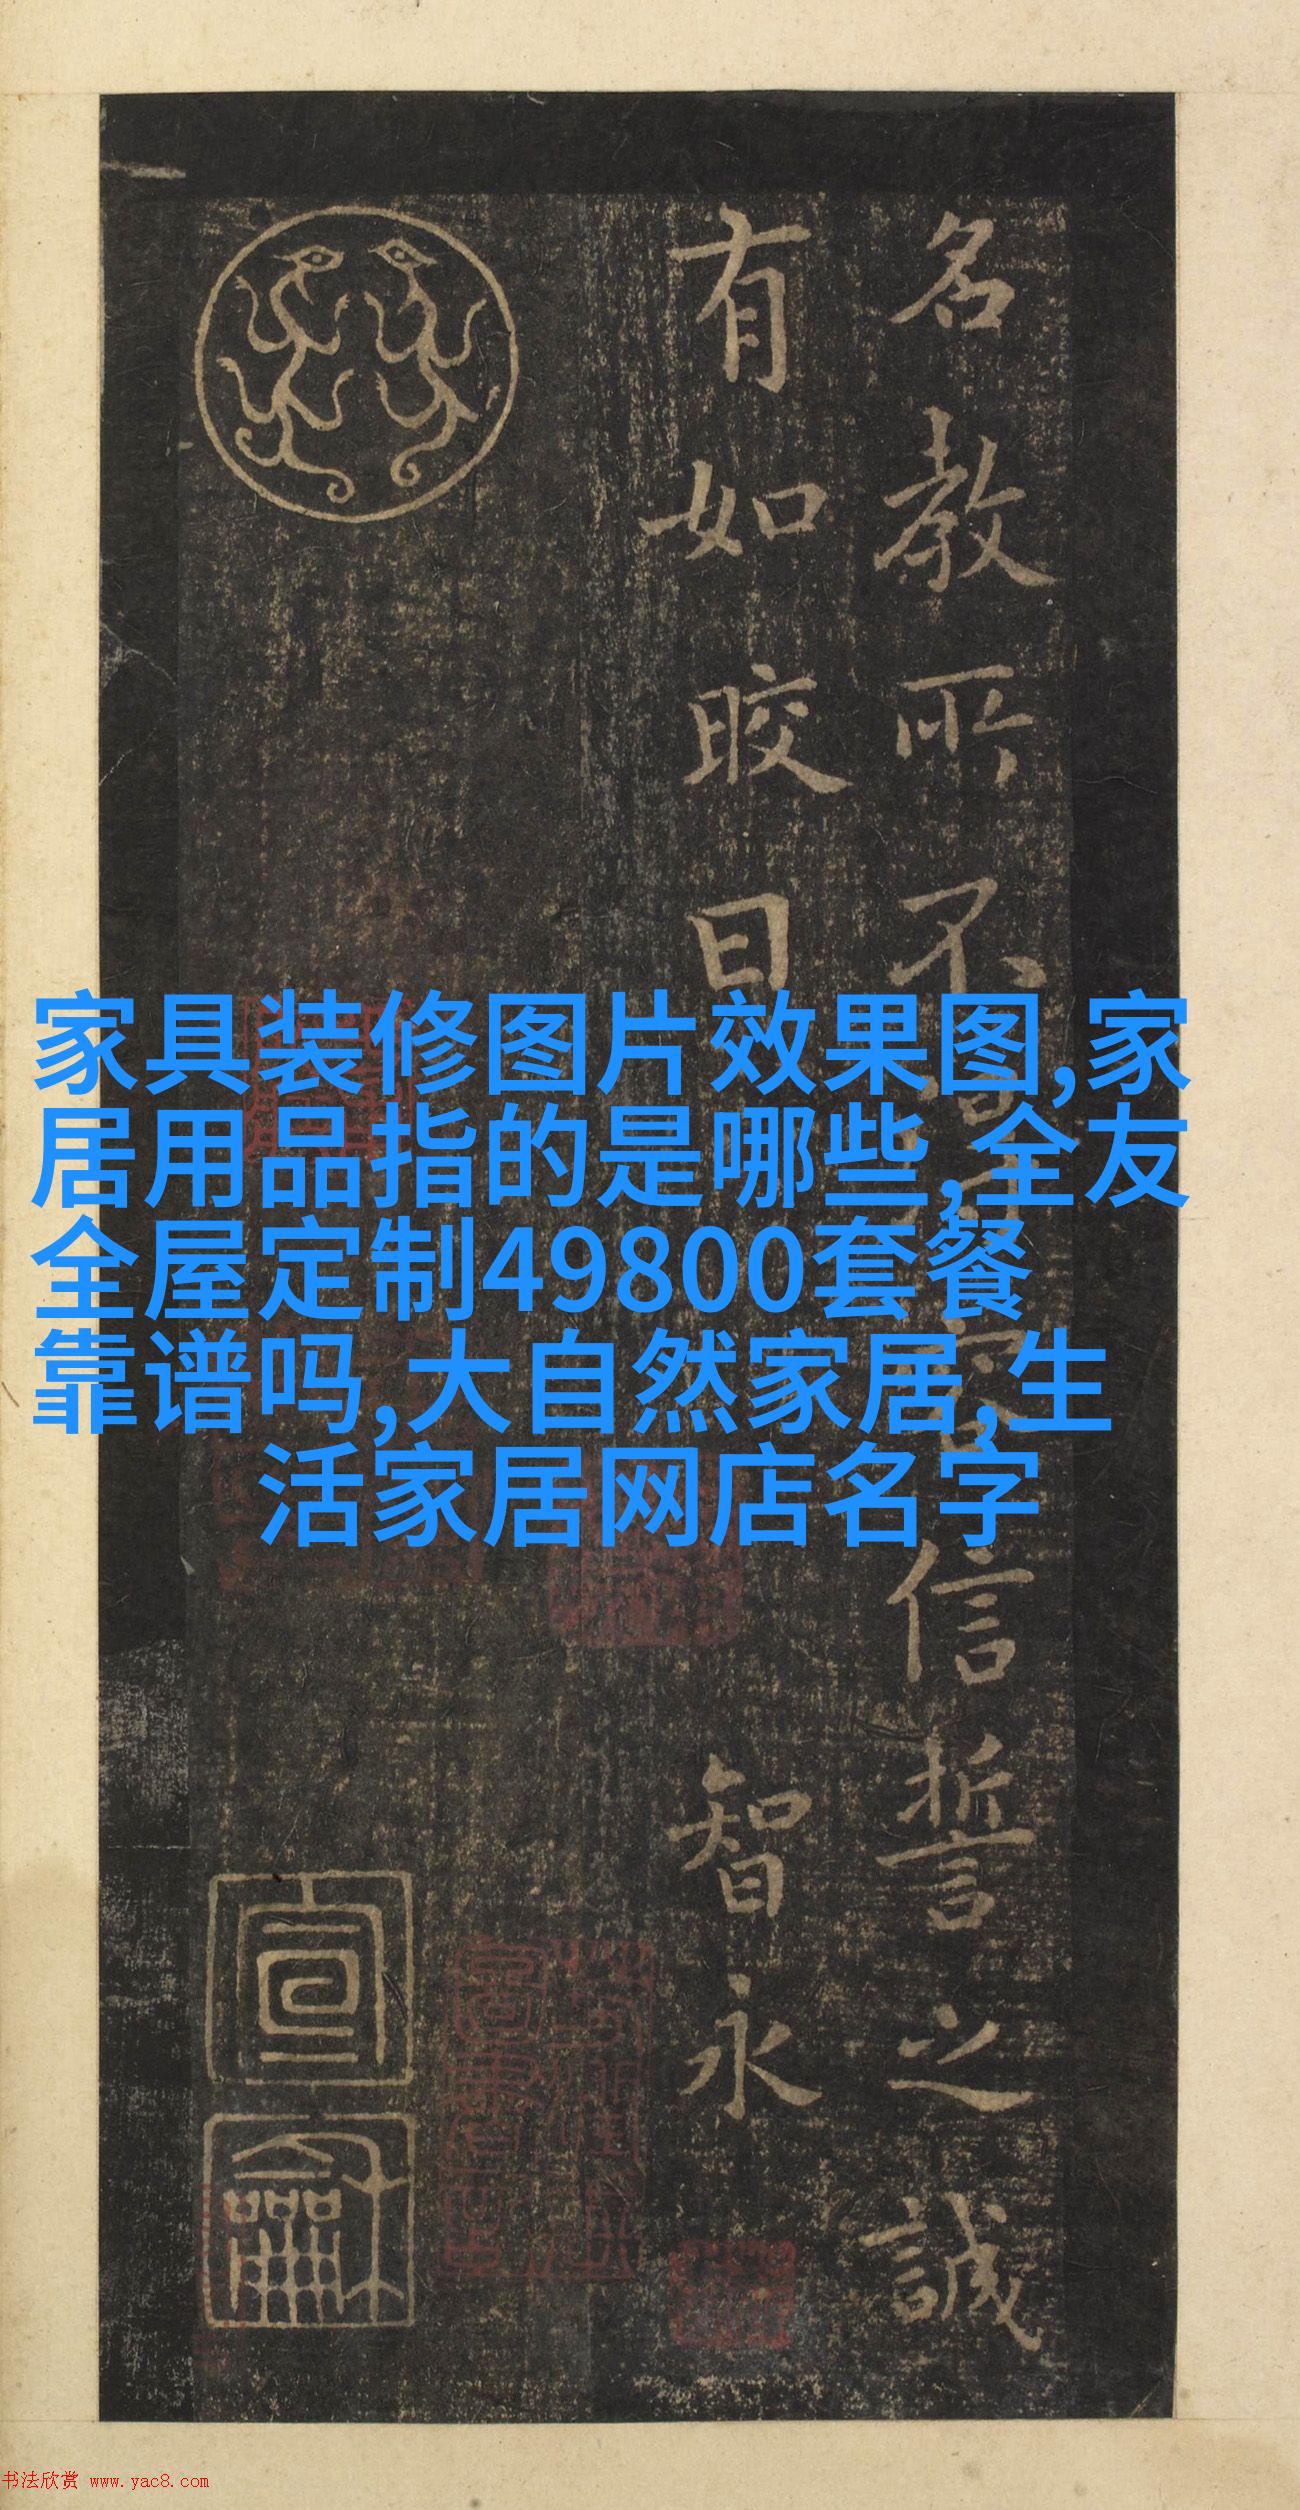 名教所不得言信誓之誠
有如晈日
智永
家具装修图片效果图,家
居用品指的是哪些,全友
全屋定制49800套餐
靠谱吗,大自然家居,生
活家居网店名字
书法欣赏 www.yac8.com